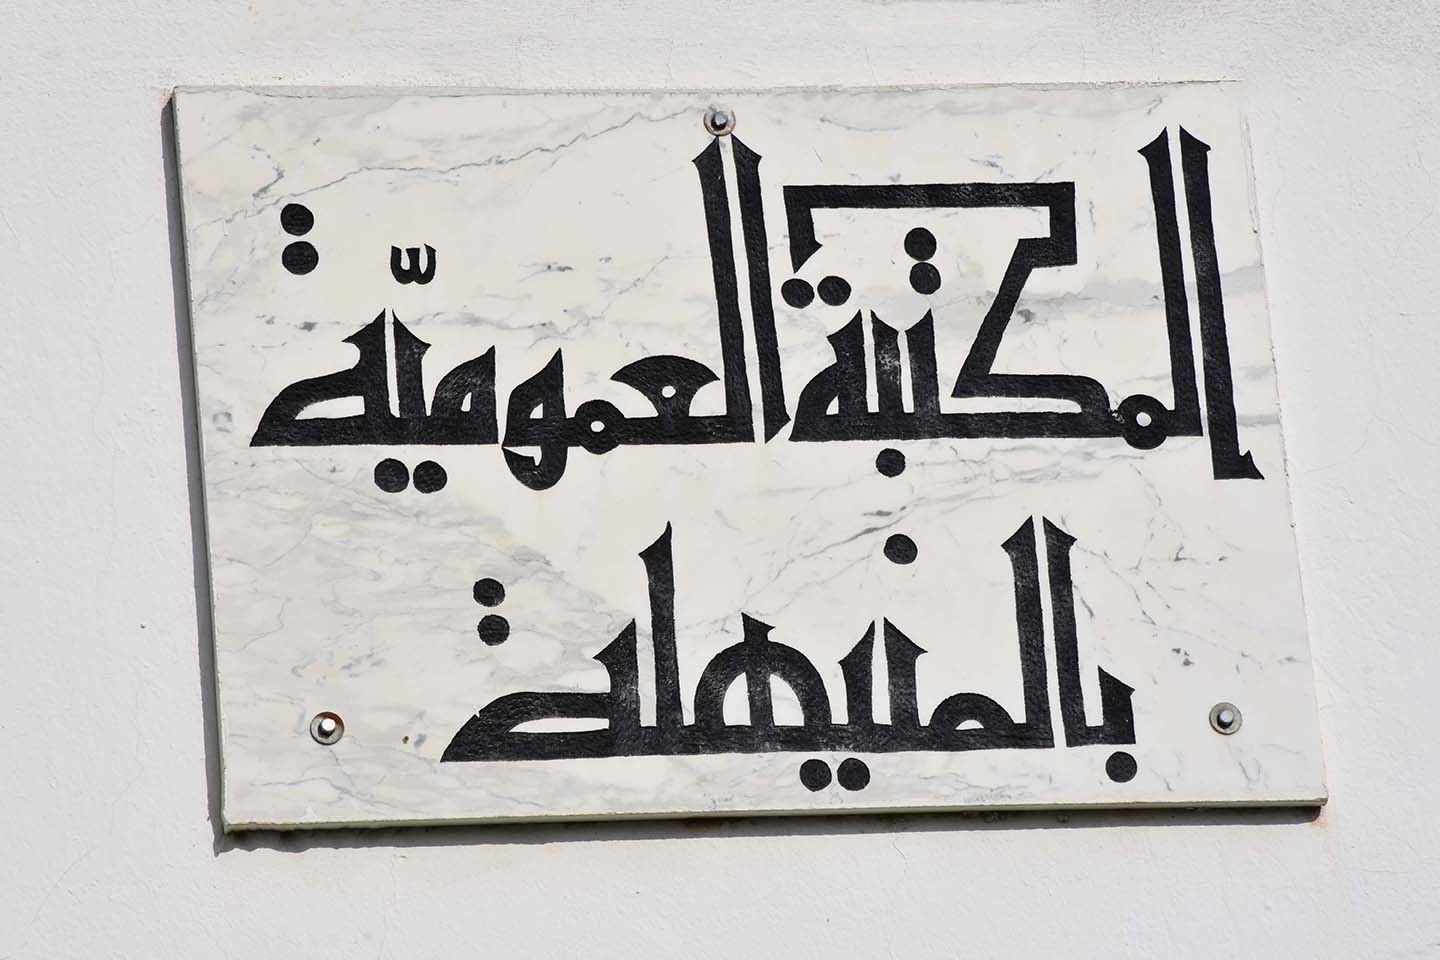 المكتبة العموميّة
بالمنيهلة